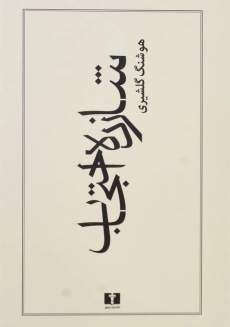 هوشنگ گلشیری
شازده احتجاب